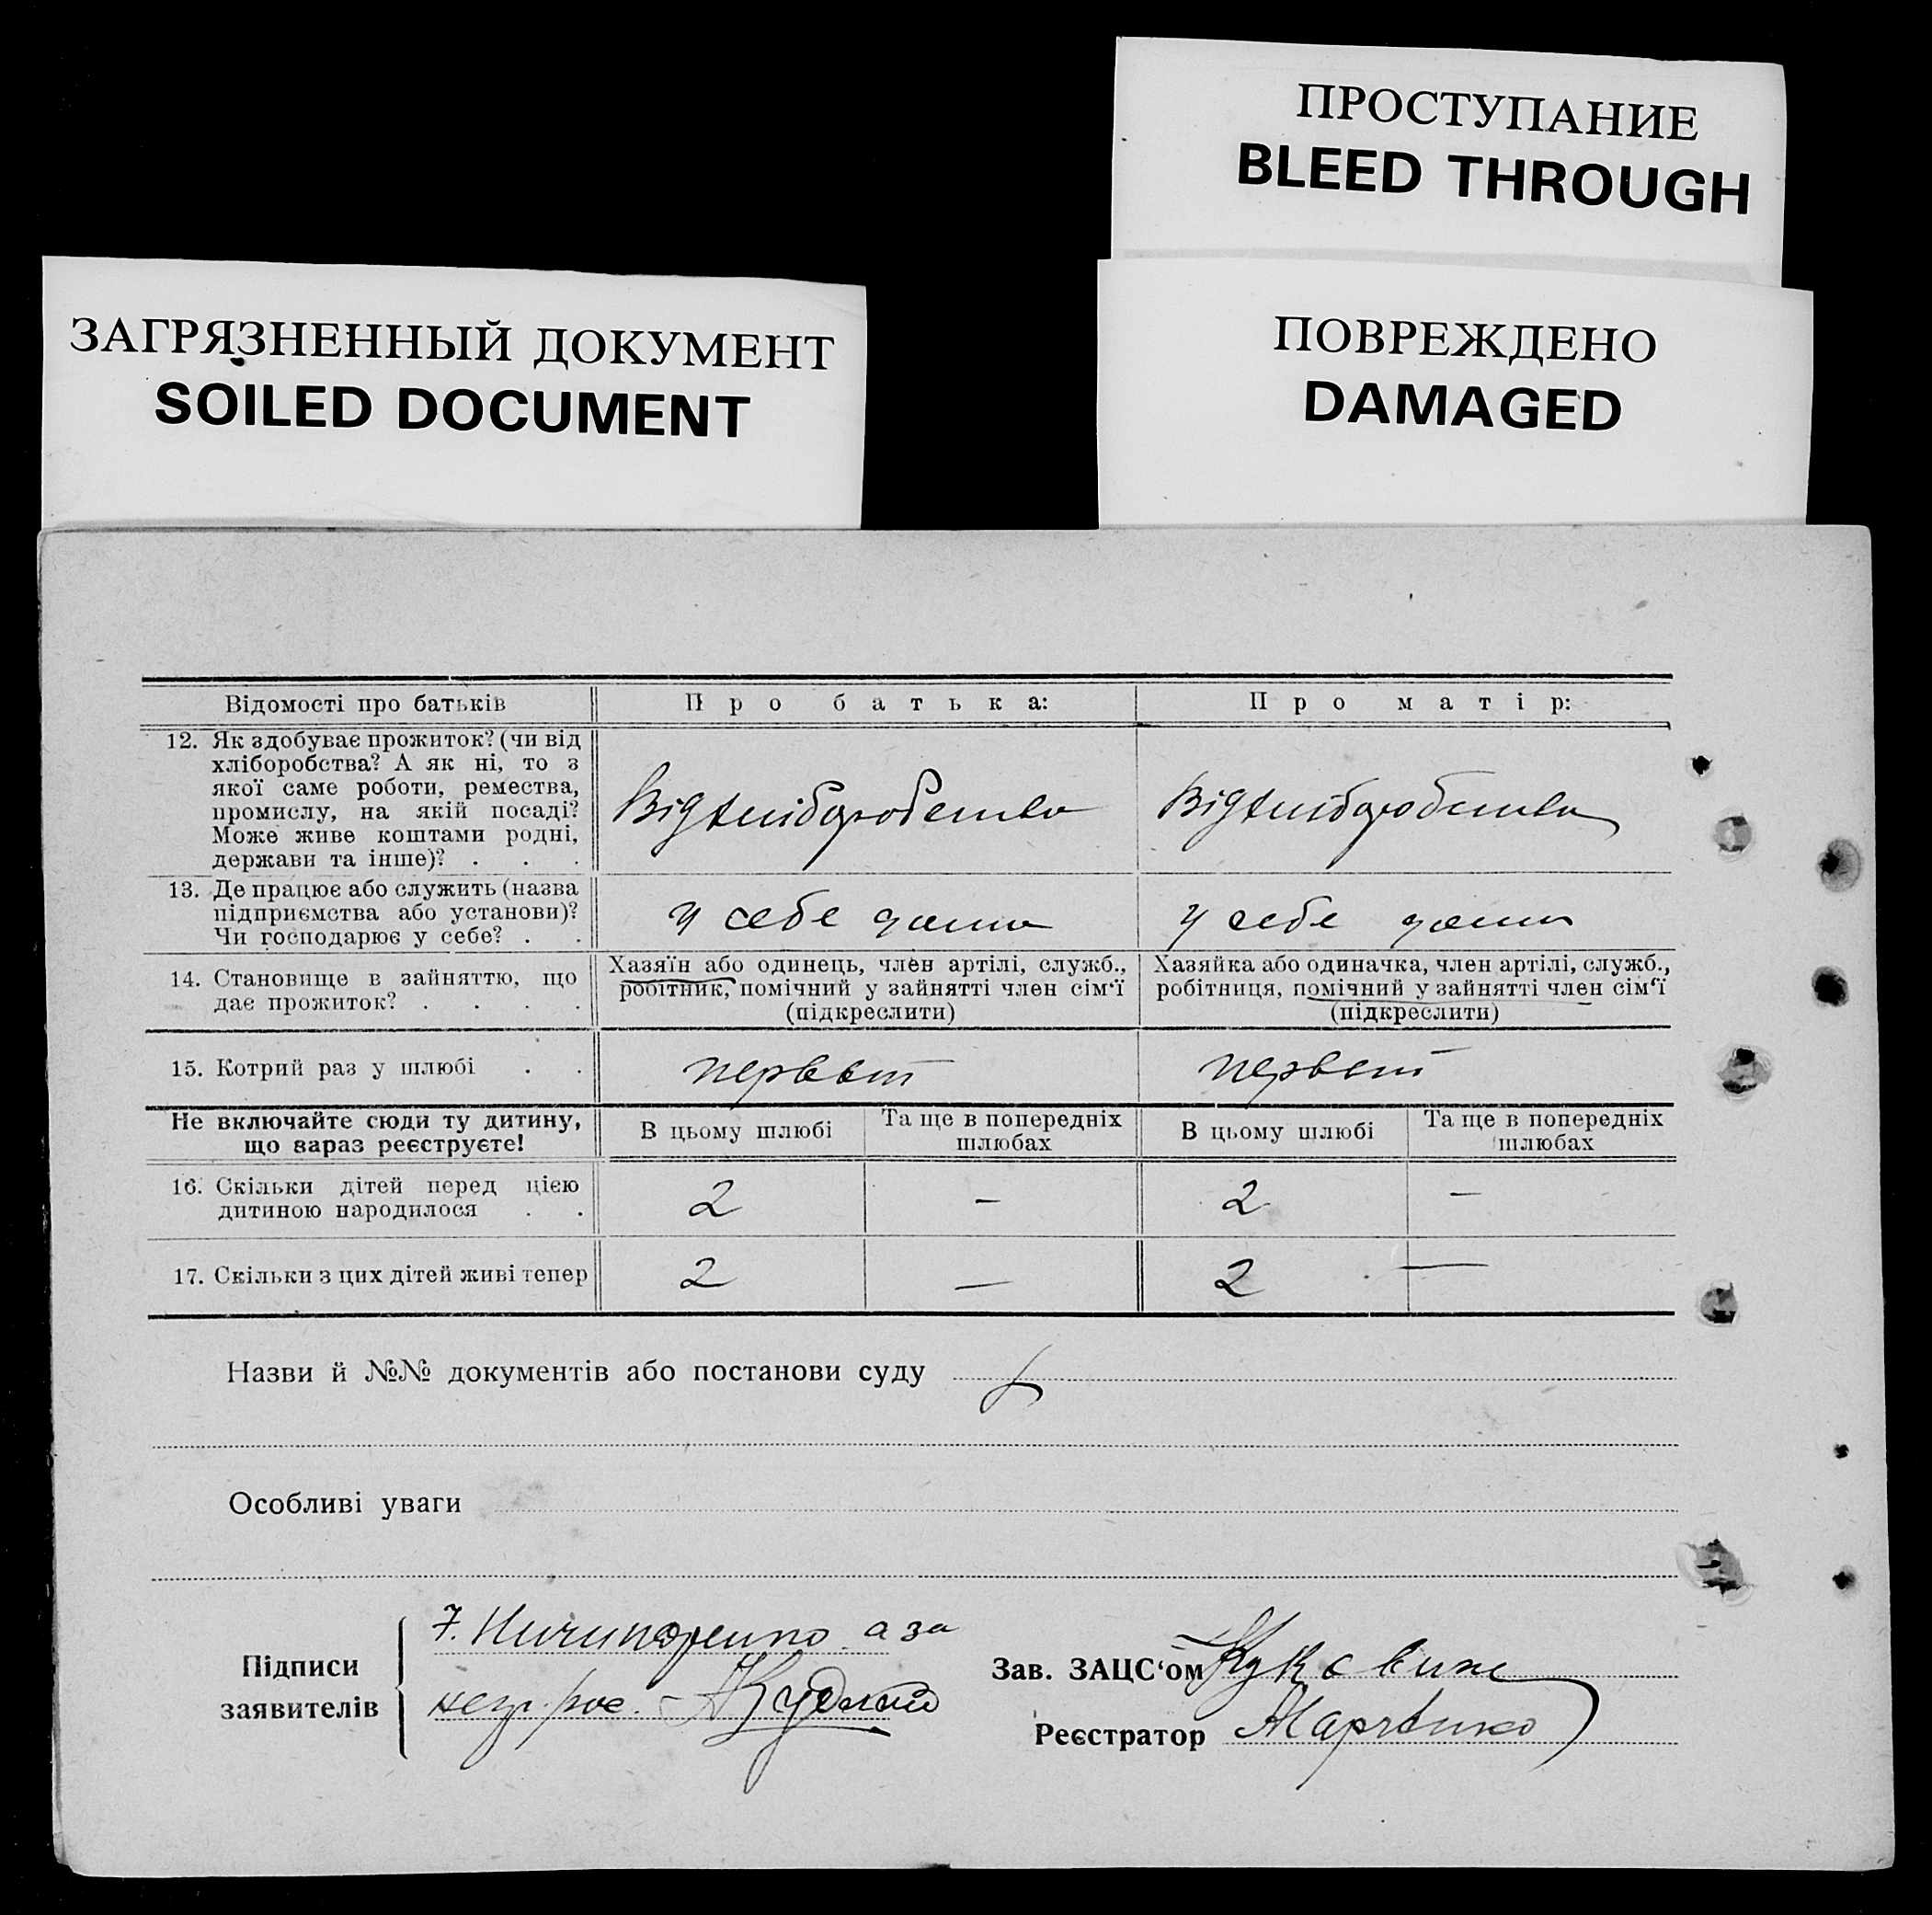 ПРОСТУПАНИЕ
BLEED THROUGH
ЗАГРЯЗНЕННЫЙ ДОКУМЕНТ
SOILED DOCUMENT
ПОВРЕЖДЕНО
DAMAGED
Відомості про батьків
Про батька:
Про матір:
12. Як здобуває прожиток? (чи від
хліборобства? А як ні, то з
якої саме роботи, ремества,
промислу, на якій посаді?
Може живе коштами родні,
держави та інше)? . . .
Відхліборобства
Відхліборобства
13. Де працює або служить (назва
підприємства або установи)?
Чи господарює у себе? . .
у себе дома
у себе дома
14. Становище в зайняттю, що
дає прожиток? . . . .
Хазяїн або одинець, член артілі, служб.,
робітник, помічний у зайнятті член сім'ї
(підкреслити)
Хазяйка або одиначка, член артілі, служб.,
робітниця, помічний у зайнятті член сім'ї
(підкреслити)
15. Котрий раз у шлюбі . .
первый
первый
Не включайте сюди ту дитину,
що зараз реєструєте!
В цьому шлюбі
Та ще в попередніх
шлюбах
В цьому шлюбі
Та ще в попередніх
шлюбах
16. Скільки дітей перед цією
дитиною народилося . .
2
—
2
—
17. Скільки з цих дітей живі тепер
2
—
2
—
Назви й №№ документів або постанови суду
Особливі уваги
Підписи
заявителів
Ничипоренко а за
негр.
Зав. ЗАЦС'ом
Реєстратор